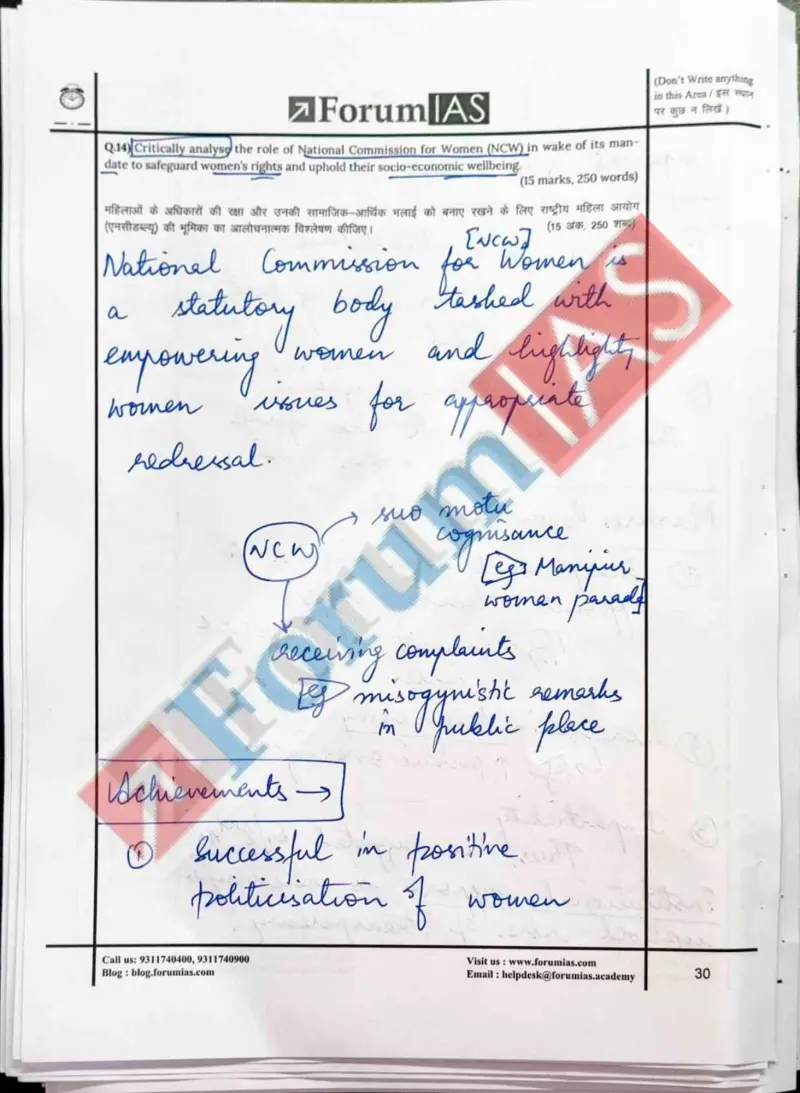 ForumIAS
(Don't Write anything
in this Area / इस स्थान
पर कुछ न लिखें )
Q.14) Critically analyse the role of National Commission for Women (NCW) in wake of its man-
date to safeguard women's rights and uphold their socio-economic wellbeing.
(15 marks, 250 words)
महिलाओं के अधिकारों की रक्षा और उनकी सामाजिक-आर्थिक भलाई को बनाए रखने के लिए राष्ट्रीय महिला आयोग
(एनसीडब्ल्यू) की भूमिका का आलोचनात्मक विश्लेषण कीजिए। (15 अंक, 250 शब्द)
[NCW]
National Commission for Women is
a statutory body tasked with
empowering women and highlight
women issues for appropriate
redressal.
NCW → suo motu
cognisance
eg Manipur
woman parade
receiving complaints
eg misogynistic remarks
in public place
Achievements →
① Successful in positive
politicisation of women
ForumIAS
Call us: 9311740400, 9311740900
Blog : blog.forumias.com
Visit us : www.forumias.com
Email : helpdesk@forumias.academy
30